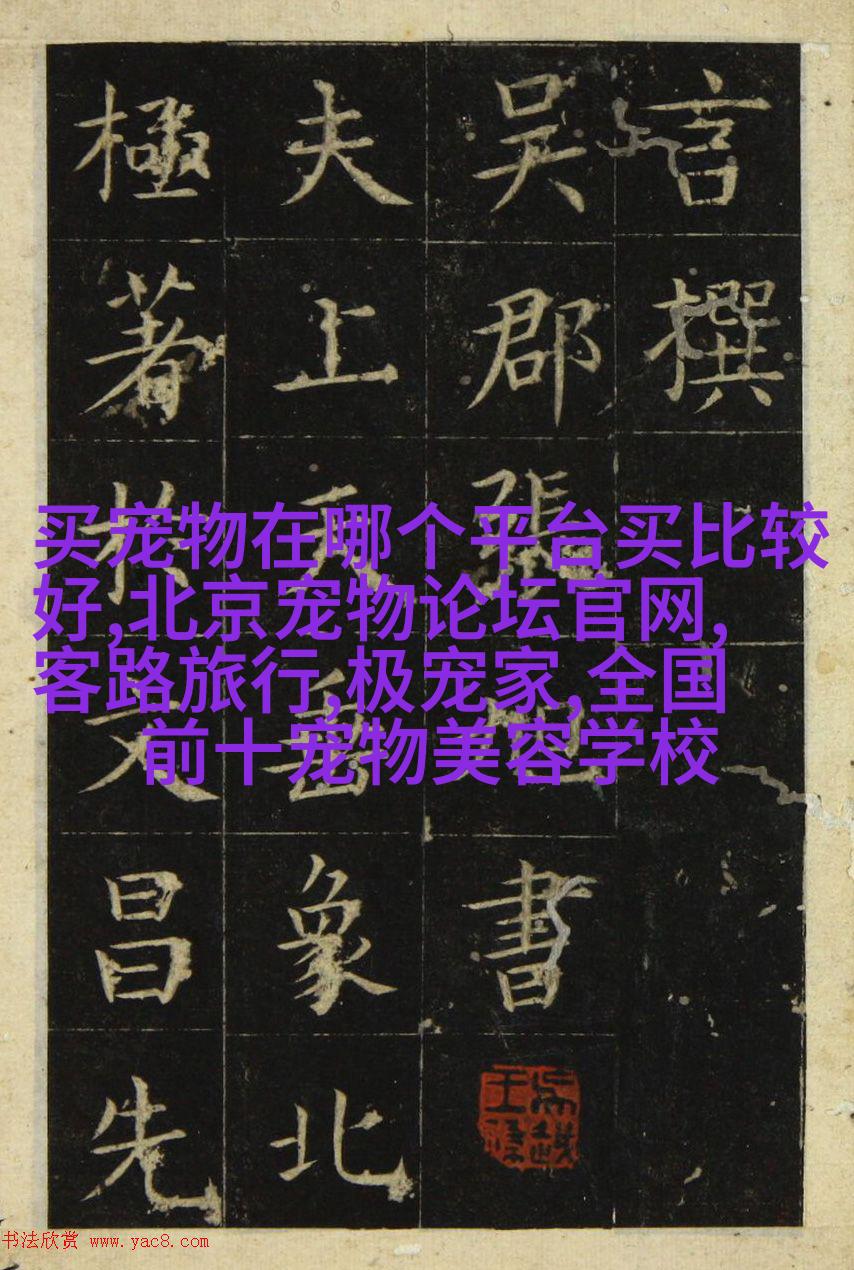 言撰
吳郡張書
夫上天垂象北
極著於文昌先
买宠物在哪个平台买比较
好,北京宠物论坛官网,
客路旅行,极宠家,全国
前十宠物美容学校
书法欣赏 www.yac8.com